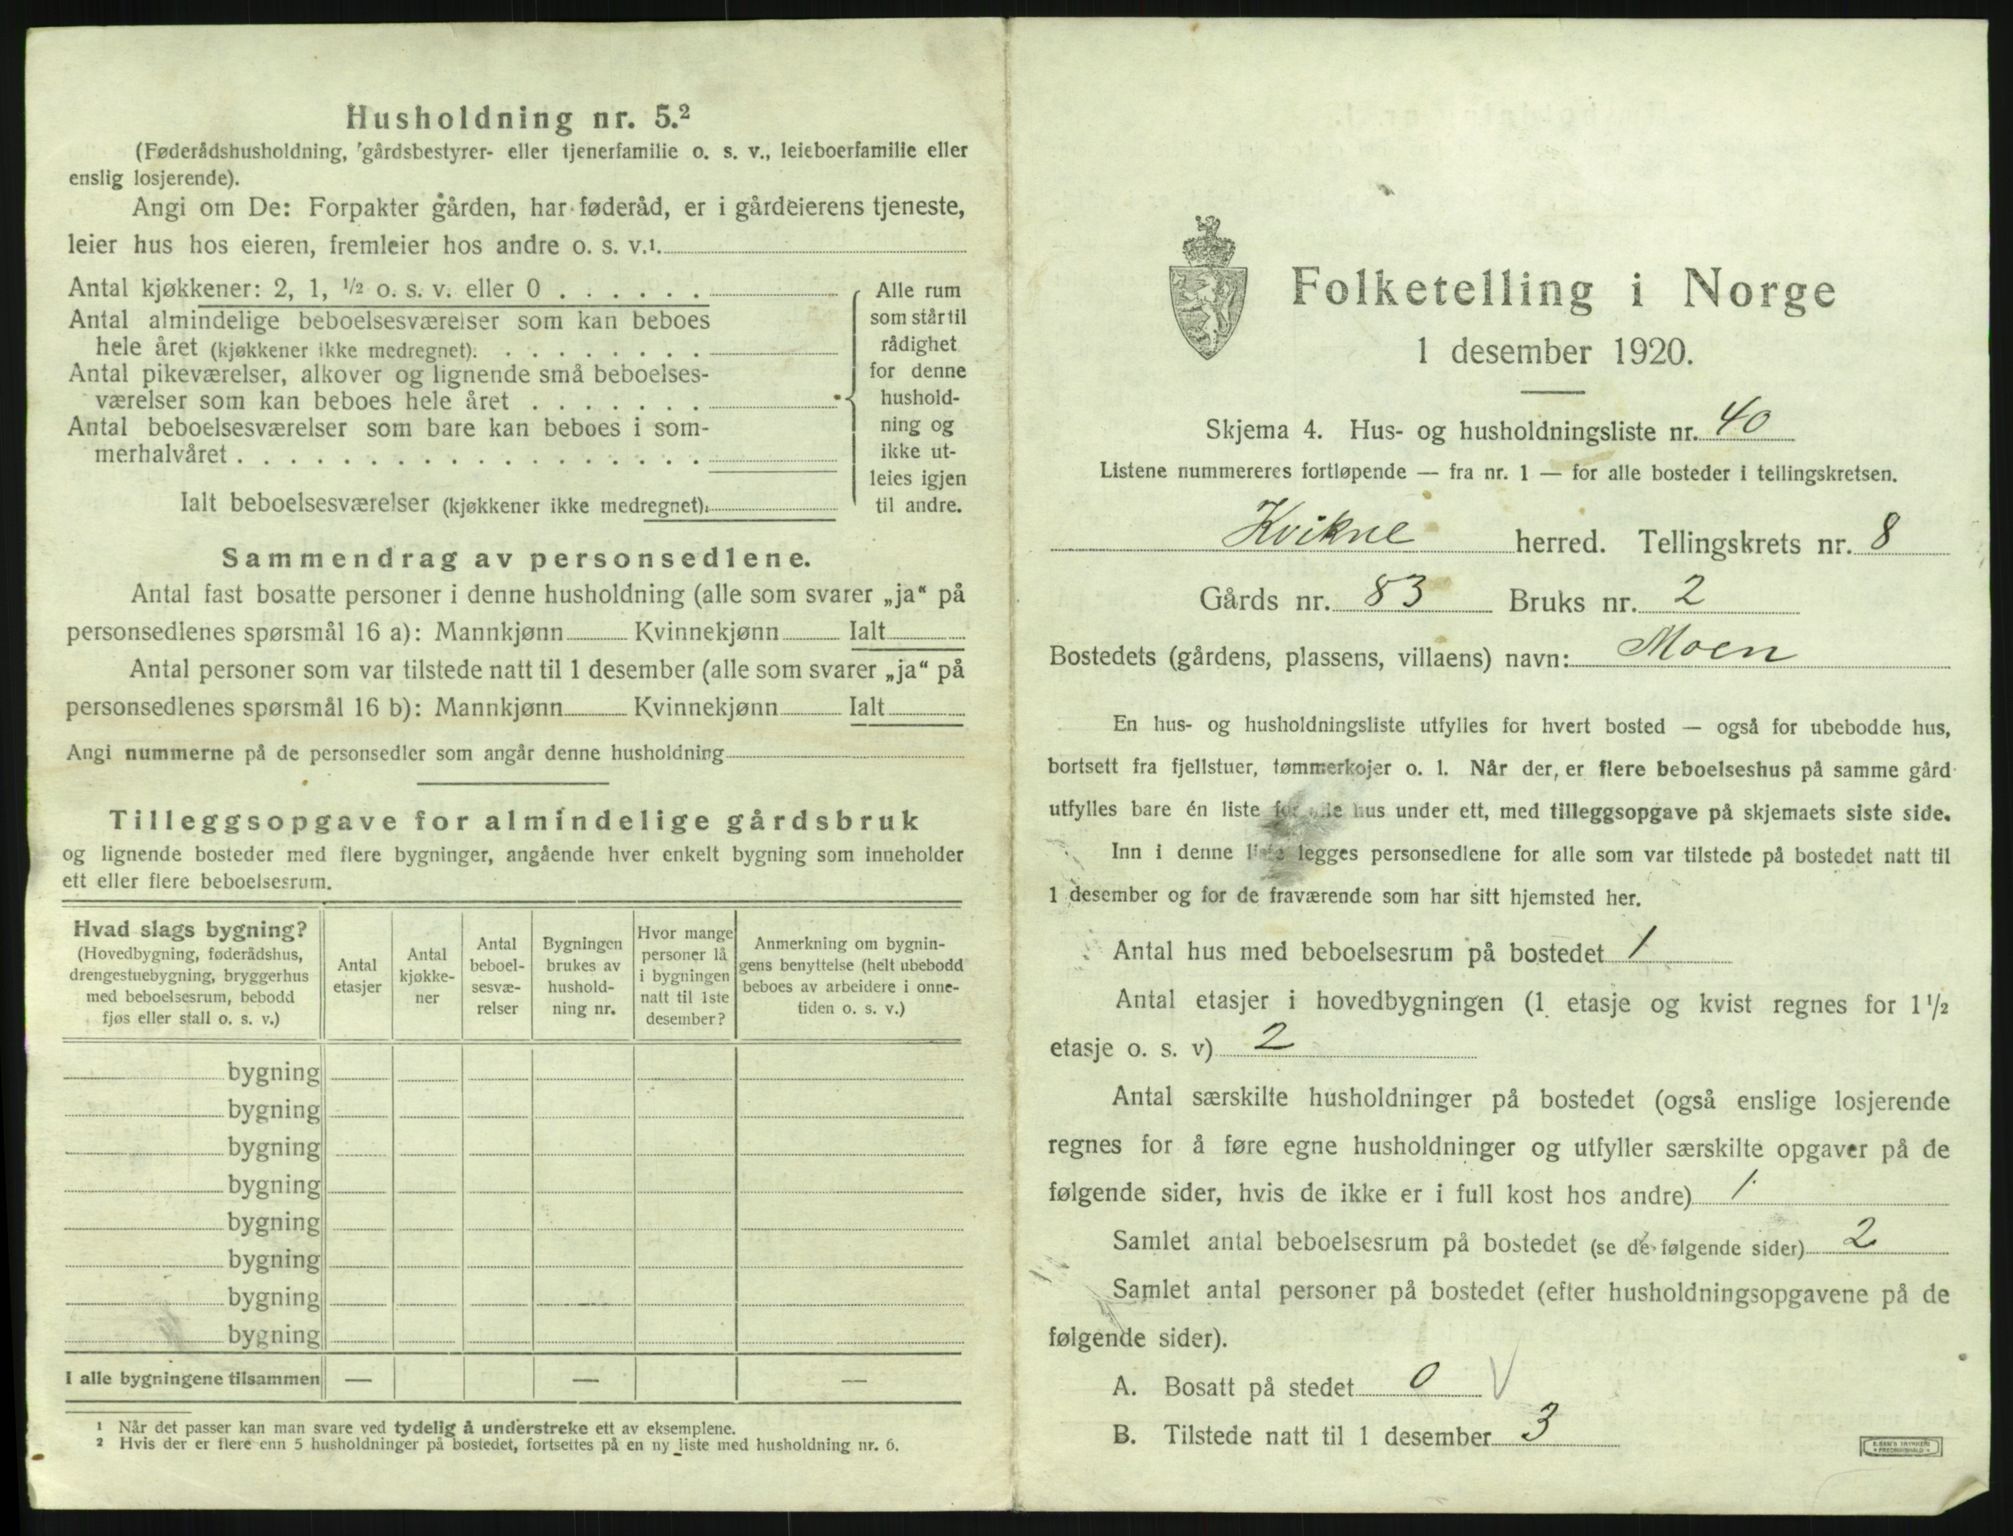 Husholdning nr. 5.²
(Føderådshusholdning, gårdsbestyrer- eller tjenerfamilie o. s. v., leieboerfamilie eller
enslig losjerende).
Angi om De: Forpakter gården, har føderåd, er i gårdeierens tjeneste,
leier hus hos eieren, fremleier hos andre o. s. v.¹
Antal kjøkkener: 2, 1, ½ o. s. v. eller 0 . . . . . .
Antal almindelige beboelsesværelser som kan beboes
hele året (kjøkkener ikke medregnet): . . . . . . . .
Antal pikeværelser, alkover og lignende små beboelses-
værelser som kan beboes hele året . . . . . . .
Antal beboelsesværelser som bare kan beboes i som-
merhalvåret . . . . . . . . . . . . . . . . . .
Ialt beboelsesværelser (kjøkkener ikke medregnet):
Alle rum
som står til
rådighet
for denne
hushold-
ning og
ikke ut-
leies igjen
til andre.
Sammendrag av personsedlene.
Antal fast bosatte personer i denne husholdning (alle som svarer „ja“ på
personsedlenes spørsmål 16 a): Mannkjønn Kvinnekjønn Ialt
Antal personer som var tilstede natt til 1 desember (alle som svarer „ja“ på
personsedlenes spørsmål 16 b): Mannkjønn Kvinnekjønn Ialt
Angi nummerne på de personsedler som angår denne husholdning
Tilleggsopgave for almindelige gårdsbruk
og lignende bosteder med flere bygninger, angående hver enkelt bygning som inneholder
ett eller flere beboelsesrum.
Hvad slags bygning?
(Hovedbygning, føderådshus,
drengestuebygning, bryggerhus
med beboelsesrum, bebodd
fjøs eller stall o. s. v.)
Antal
etasjer
Antal
kjøkke-
ner
Antal
beboel-
sesvæ-
relser
Bygningen
brukes av
hushold-
ning nr.
Hvor mange
personer lå
i bygningen
natt til 1ste
desember?
Anmerkning om bygnin-
gens benyttelse (helt ubebodd
beboes av arbeidere i onne-
tiden o. s. v.)
bygning
bygning
bygning
bygning
bygning
bygning
bygning
bygning
I alle bygningene tilsammen — — —
¹ Når det passer kan man svare ved tydelig å understreke ett av eksemplene.
² Hvis der er flere enn 5 husholdninger på bostedet, fortsettes på en ny liste med husholdning nr. 6.
Folketelling i Norge
1 desember 1920.
Skjema 4. Hus- og husholdningsliste nr. 40
Listene nummereres fortløpende — fra nr. 1 — for alle bosteder i tellingskretsen.
Kvikne herred. Tellingskrets nr. 8
Gårds nr. 83 Bruks nr. 2
Bostedets (gårdens, plassens, villaens) navn: Moen
En hus- og husholdningsliste utfylles for hvert bosted — også for ubebodde hus,
bortsett fra fjellstuer, tømmerkojer o. l. Når der er flere beboelseshus på samme gård
utfylles bare én liste for alle hus under ett, med tilleggsopgave på skjemaets siste side.
Inn i denne liste legges personsedlene for alle som var tilstede på bostedet natt til
1 desember og for de fraværende som har sitt hjemsted her.
Antal hus med beboelsesrum på bostedet 1
Antal etasjer i hovedbygningen (1 etasje og kvist regnes for 1 ½
etasje o. s. v) 2
Antal særskilte husholdninger på bostedet (også enslige losjerende
regnes for å føre egne husholdninger og utfyller særskilte opgaver på de
følgende sider, hvis de ikke er i full kost hos andre) 1
Samlet antal beboelsesrum på bostedet (se de følgende sider) 2
Samlet antal personer på bostedet (efter husholdningsopgavene på de
følgende sider).
A. Bosatt på stedet 0 V
B. Tilstede natt til 1 desember 3